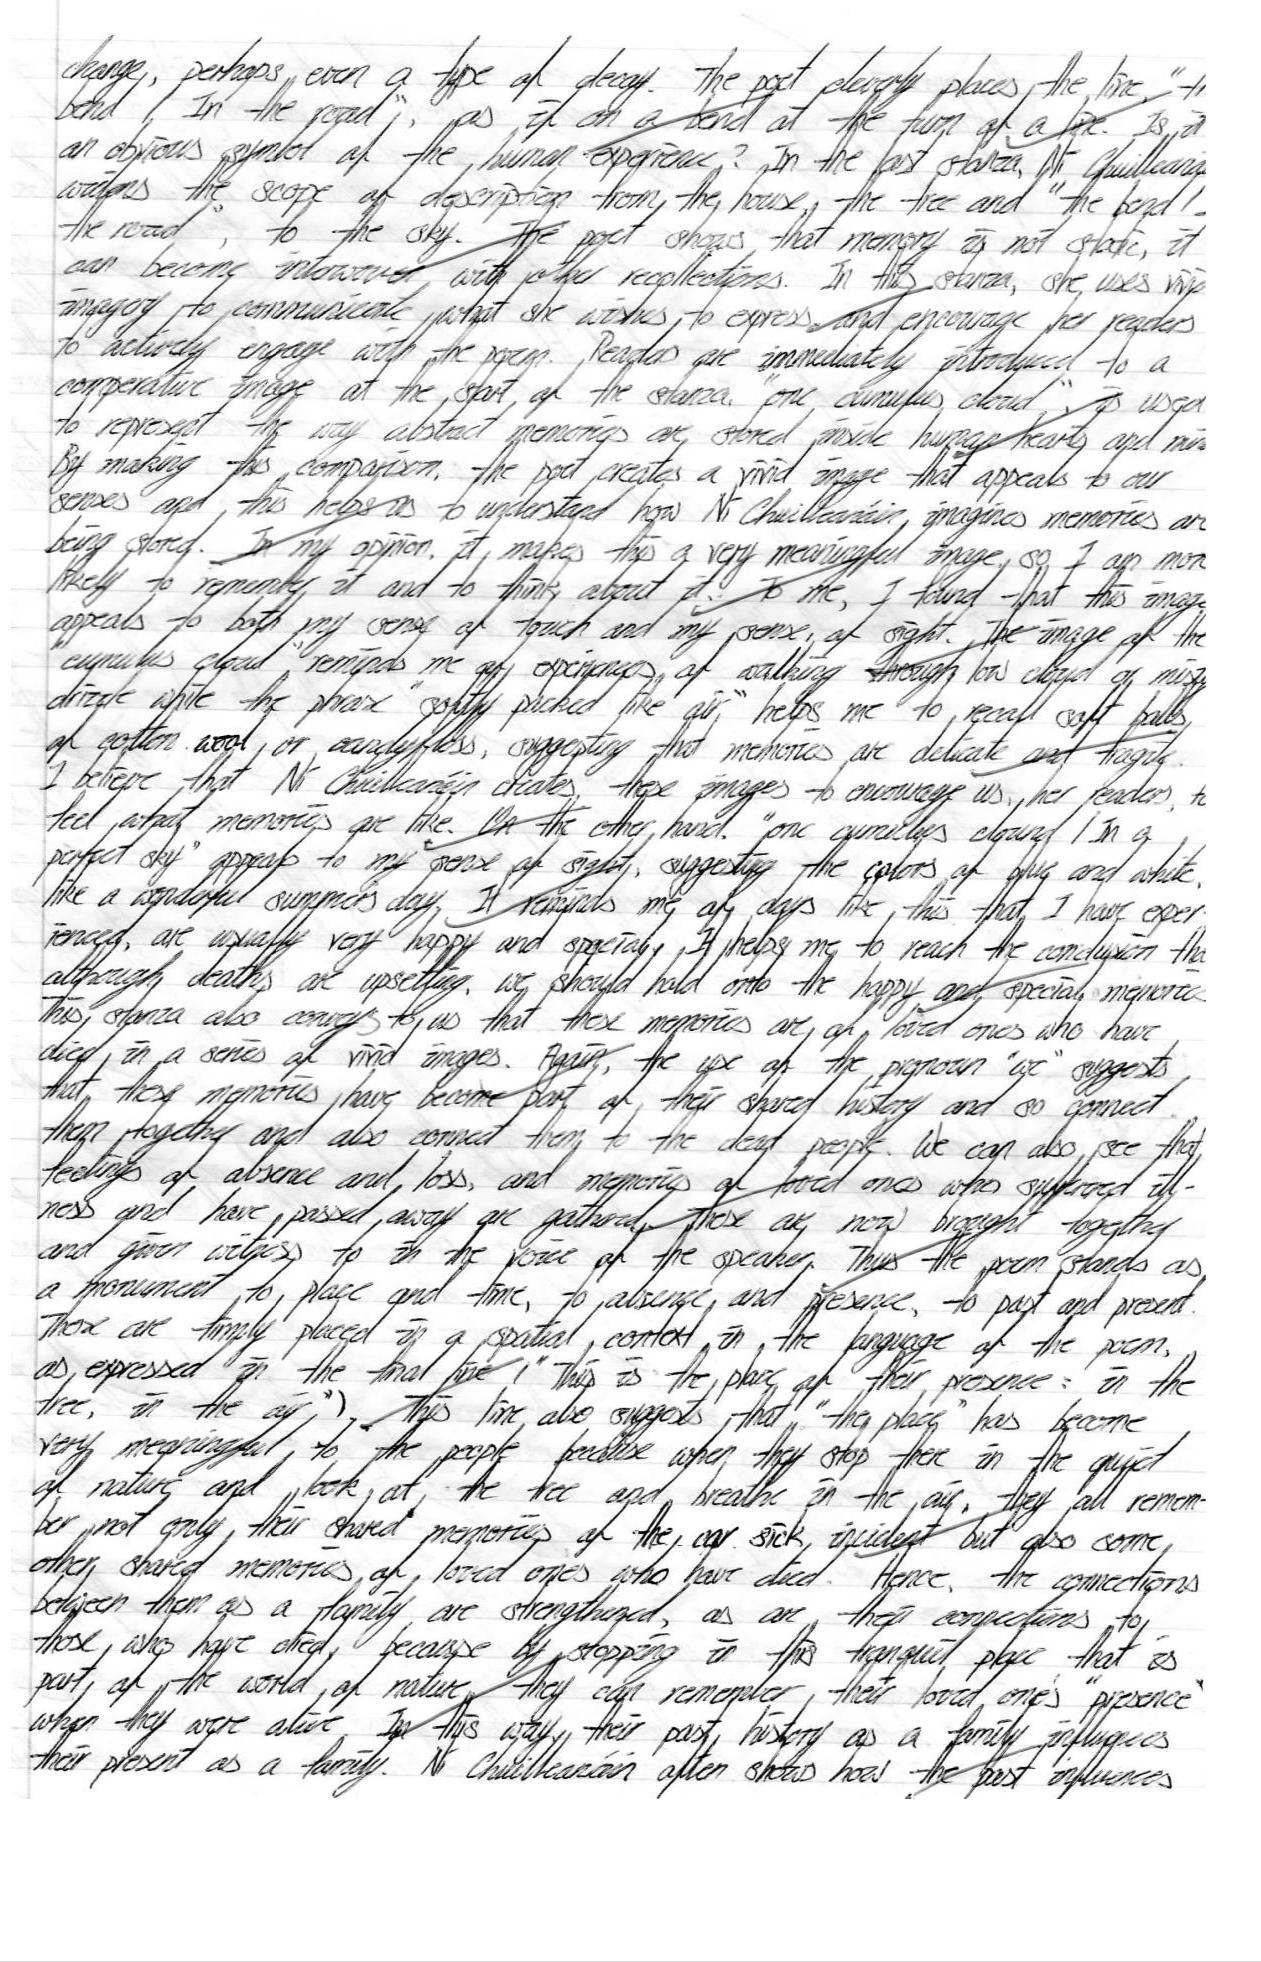 change, perhaps even a type of decay. The poet cleverly places the line, "
bend / In the road", as if on a bend at the turn of a line. Is it
an obvious symbol of the human experience? In the last stanza, Ní Chuilleanáin
widens the scope of description from the house, the tree and "the bend /
the road", to the sky. The poet shows that memory is not static, it
can become interwoven with other recollections. In this stanza, she uses vivid
imagery to communicate what she wishes to express and encourage her readers
to actively engage with the poem. Readers are immediately introduced to a
comperative image at the start of the stanza. "one cumulus cloud", is used
to represent the way abstract memories are stored inside human hearts and
By making this comparison, the poet creates a vivid image that appeals to our
senses and this helps us to understand how Ní Chuilleanáin imagines memories are
being stored. In my opinion, it makes this a very meaningful image, so I am more
likely to remember it and to think about it. To me, I found that this image
appeals to both my sense of touch and my sense of sight. The image of the
"cumulus cloud" reminds me of experiences of walking through low cloud or misty
drizzle while the phrase "softly packed like air," helps me to recall soft balls
of cotton wool or candyfloss, suggesting that memories are delicate and fragile.
I believe that Ní Chuilleanáin creates these images to encourage us, her readers, to
feel what memories are like. On the other hand, "one cumulus cloud / In a
perfect sky" appeals to my sense of sight, suggesting the colors of blue and white,
like a wonderful summer's day. It reminds me of days like this that I have exper-
ienced, are usually very happy and special. It helps me to reach the conclusion that
although deaths are upsetting, we should hold onto the happy and special memories
This stanza also conveys to us that these memories are of loved ones who have
died, in a series of vivid images. Again, the use of the pronoun "we" suggests
that these memories have become part of their shared history and so connect
them together and also connect them to the dead people. We can also see that
feelings of absence and loss, and memories of loved ones who suffered ill-
ness and have passed away are gathered. These are now brought together
and given witness to in the voice of the speaker. Thus the poem stands as
a monument to place and time, to absence and presence, to past and present.
These are firmly placed in a spatial context in the language of the poem,
as expressed in the final line ("This is the place of their presence: in the
tree, in the air,"). This line also suggests that "the place" has become
very meaningful to the people because when they stop there in the quiet
of nature and look at the tree and breathe in the air, they all remem-
ber not only their shared memories of the car sick incident but also some
other shared memories of loved ones who have died. Hence, the connections
between them as a family are strengthened, as are their connections to
those who have died, because by stopping in this tranquil place that is
part of the world of nature, they can remember their loved one's "presence"
when they were alive. In this way, their past history as a family influences
their present as a family. Ní Chuilleanáin often shows how the past influences